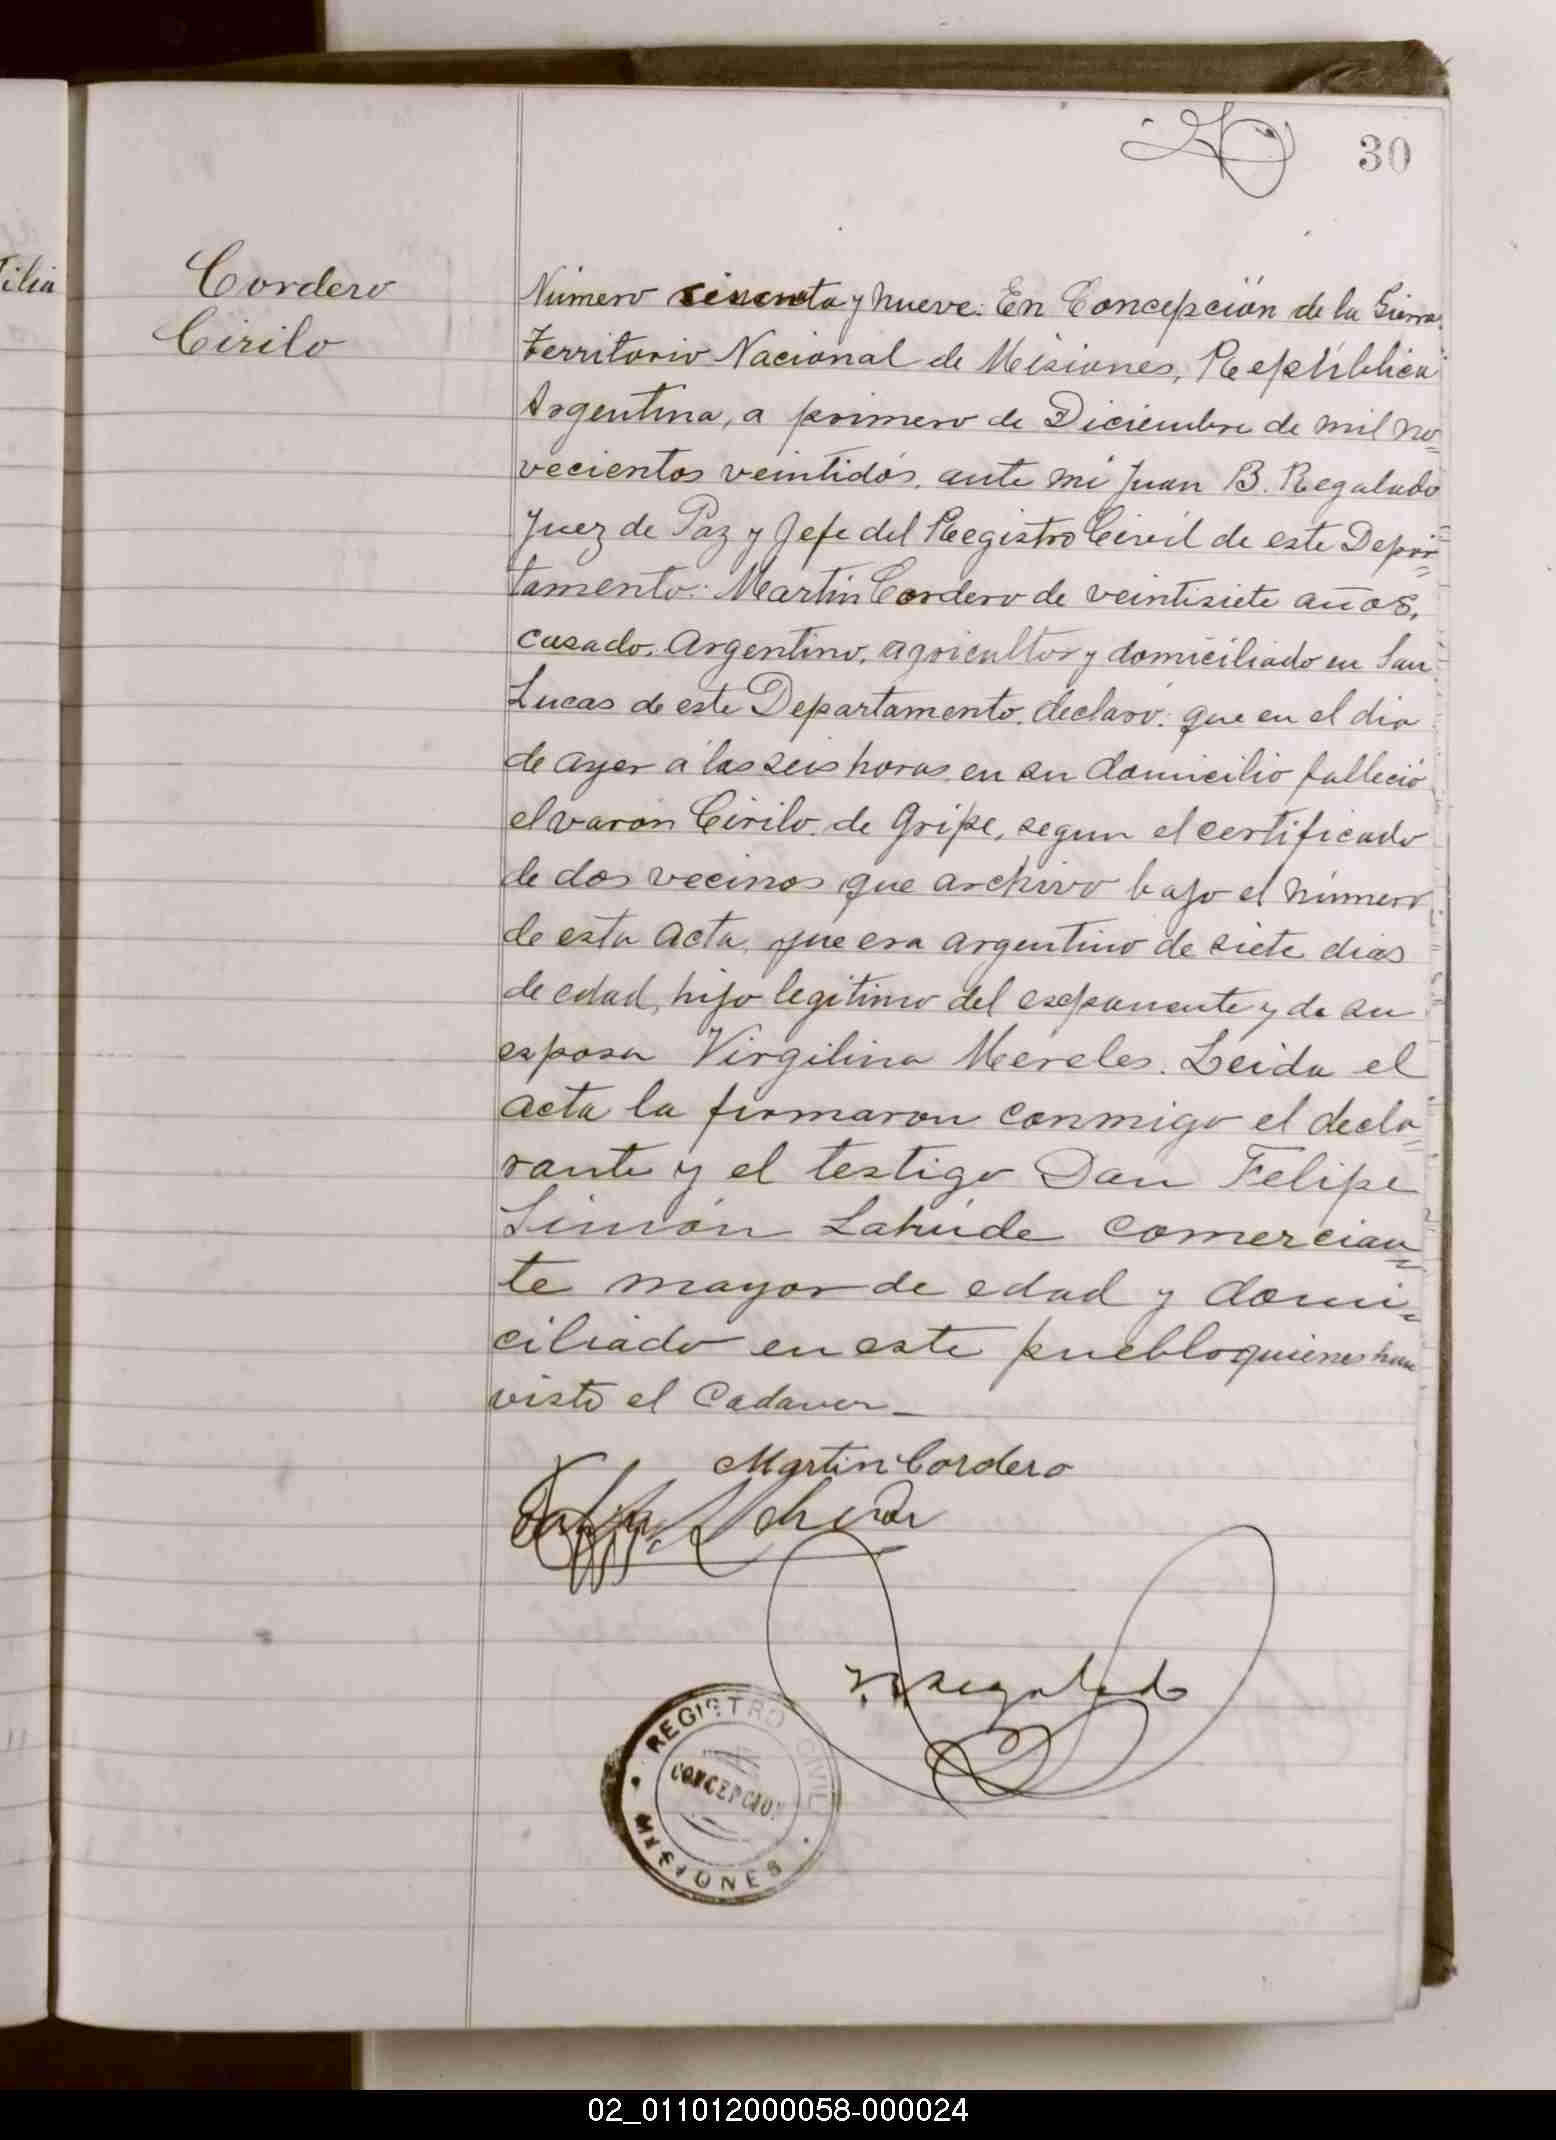 30
ilia
Cordero
Cirilo
Número cincuenta y nueve: En Concepción de la Sierra
Territorio Nacional de Misiones, República
Argentina, a primero de Diciembre de mil no=
vecientos veintidós, ante mi Juan B. Regalado
Juez de Paz y Jefe del Registro Civil de este Depar=
tamento: Martín Cordero de veintisiete años,
casado, Argentino, agricultor y domiciliado en San
Lucas de este Departamento, declaró: que en el dia
de ayer á las seis horas en su domicilio falleció
el varón Cirilo, de Gripe, segun el certificado
de dos vecinos que archivo bajo el número
de esta acta, que era argentino de siete dias
de edad, hijo legítimo del exponente y de su
esposa Virgilina Mereles. Leida el
acta la firmaron conmigo el decla=
rante y el testigo Don Felipe
Simón Lahúde comercian=
te mayor de edad y domi=
ciliado en este pueblo quienes han
visto el Cadaver_
Martin Cordero
Regalado
REGISTRO CIVIL
CONCEPCION
MISIONES
02_011012000058-000024